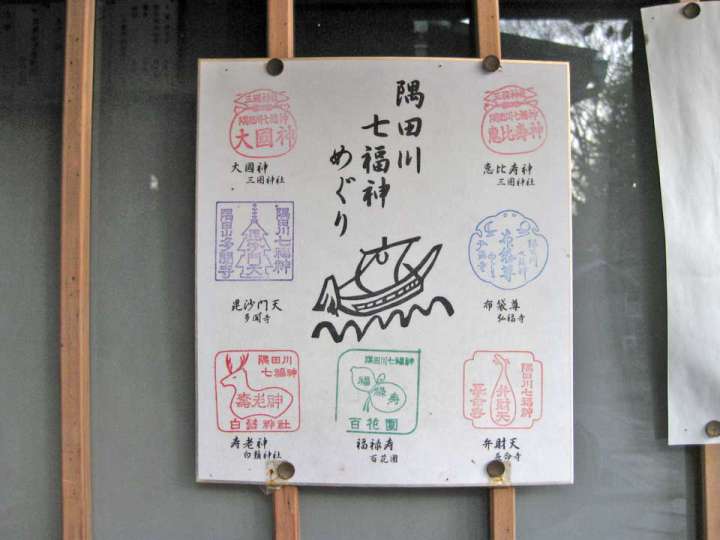 隅田川
七福神
めぐり
三囲神社
隅田川七福神
大國神
大國神
三囲神社
三囲神社
隅田川七福神
恵比寿神
恵比寿神
三囲神社
隅田川七福神
毘沙門天
隅田山多聞寺
毘沙門天
多聞寺
布袋尊
布袋尊
弘福寺
隅田川
七福神
壽老神
白鬚神社
寿老神
白鬚神社
隅田川七福神
福禄寿
百花園
福禄寿
百花園
隅田川七福神
弁財天
長命寺
弁財天
長命寺